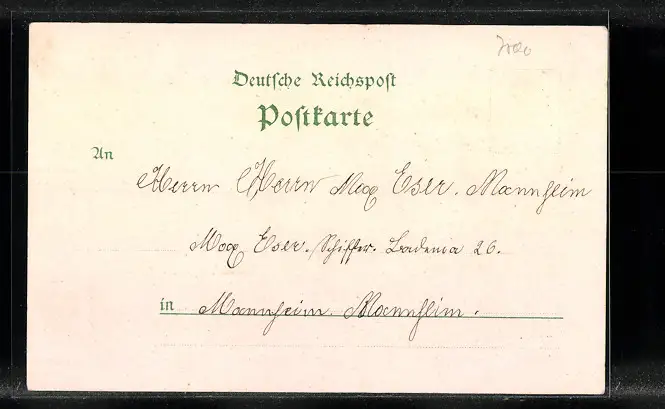 Deutsche Reichspost
Postkarte
An
Herrn Herrn Max Eser. Mannheim
Max Eser. Schiffer. Badenia 26.
in Mannheim. Mannheim.